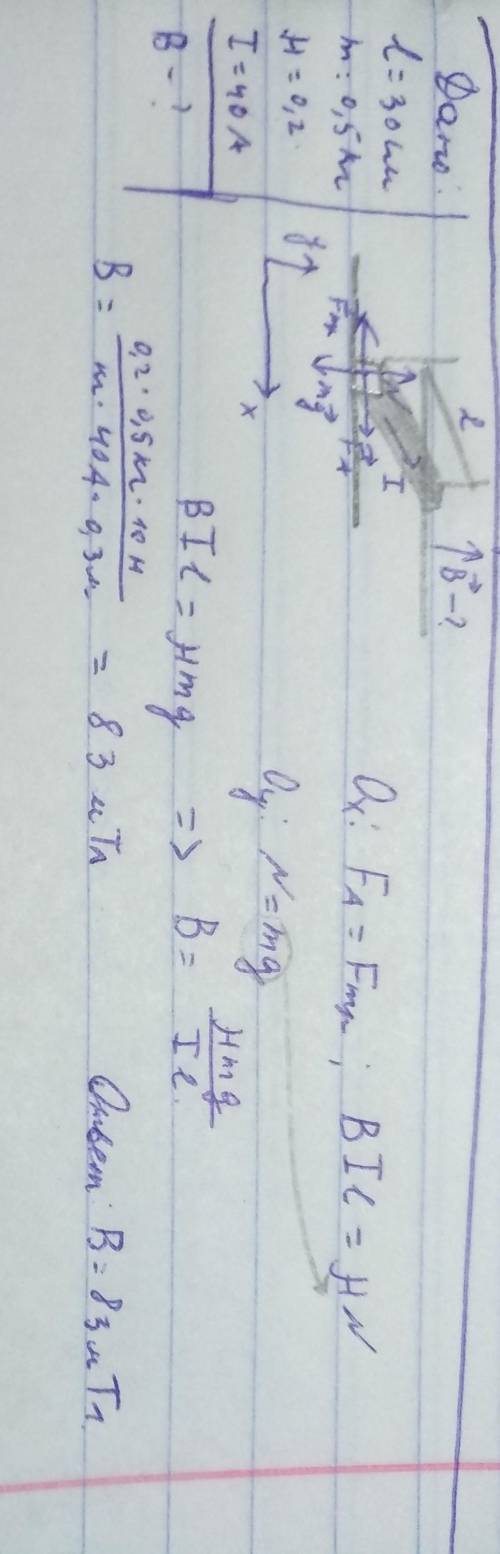 Дано:
l = 30 см
m = 0,5 кг
μ = 0,2.
I = 40 А
B - ?
l
↑B⃗ - ?
I
N⃗
F⃗A
Fтр
mg⃗
y
x
Ox: FA = Fтр; BIl = μN
Oy: N = mg
BIl = μmg => B = μmg / Il
B = 0,2 · 0,5 кг · 10 Н / м · 40 А · 0,3 м = 83 мТл
Ответ: B = 83 мТл.